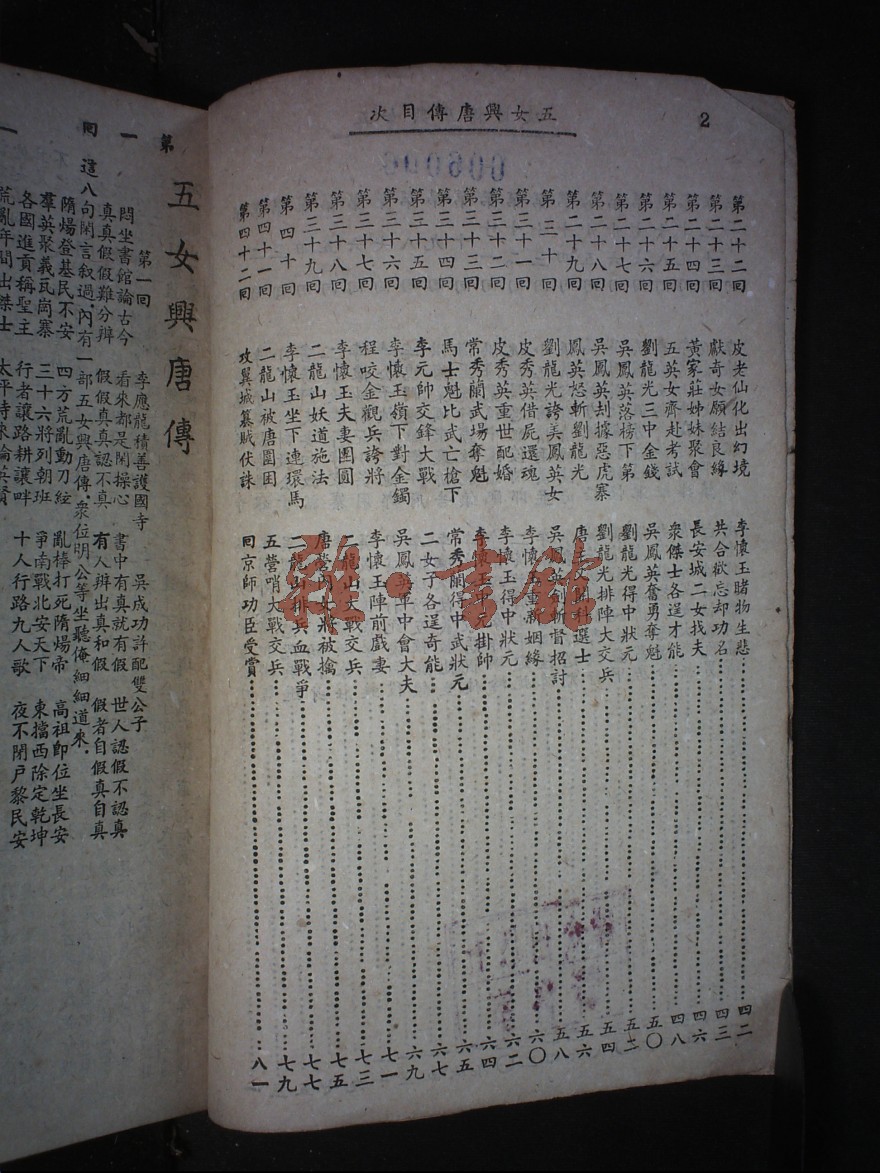 2
五女興唐傳目次
006006
第二十二回 皮老仙化出幻境 李懷玉賭物生悲 四二
第二十三回 獻奇女願結良緣 共合欲忘却功名 四三
第二十四回 黃家莊姊妹聚會 長安城二女找夫 四六
第二十五回 五英女齊赴考試 衆傑士各逞才能 四八
第二十六回 劉龍光三中金錢 吳鳳英奮勇奪魁 五〇
第二十七回 吳鳳英落榜下第 劉龍光得中狀元 五二
第二十八回 吳鳳英刦據惡虎寨 劉龍光排陣大交兵 五四
第二十九回 鳳英怒斬劉龍光 唐文開科選士 五六
第三十回 劉龍光誇美鳳英女 吳鳳英劍斬督招討 五八
第三十一回 皮秀英借屍還魂 李懷玉重新姻緣 六〇
第三十二回 皮秀英重世配婚 李懷玉得中狀元 六二
第三十三回 常秀蘭武場奪魁 李懷玉中元掛帥 六四
第三十四回 馬士魁比武亡槍下 常秀蘭得中武狀元 六五
第三十五回 李元帥交鋒大戰 二女子各逞奇能 六七
第三十六回 李懷玉嶺下對金鐲 吳鳳英軍中會大夫 六九
第三十七回 程咬金觀兵誇將 李懷玉陣前戲妻 七一
第三十八回 李懷玉夫妻團圓 二龍山大戰交兵 七三
第三十九回 二龍山妖道施法 唐營內女將被擒 七五
第四十回 李懷玉坐下連環馬 二龍山排兵血戰爭 七七
第四十一回 二龍山被唐圍困 五營哨大戰交兵 七九
第四十二回 攻翼城纂賊伏誅 回京師功臣受賞 八一
雅·書館
第一回
五女興唐傳
第一回 李應龍積善護國寺 吳成功許配雙公子
悶坐書館論古今 看來都是閑操心 書中有真就有假 世人認假不認真
真真假假難分辨 假假真真認不真 有人辨出真和假 假者自假真自真
這八句閑言叙過,內有一部五女興唐傳,衆位明公等坐聽俺細細道來,
隋煬登基民不安 四方荒亂動刀鋋 亂棒打死隋煬帝 高祖卽位坐長安
羣英聚義瓦崗寨 三十六將列朝班 爭南戰北安天下 東擋西除定乾坤
各國進貢稱聖主 行者讓路耕讓畔 十人行路九人歌 夜不閉戶黎民安
荒亂年間出傑士 太平時
一